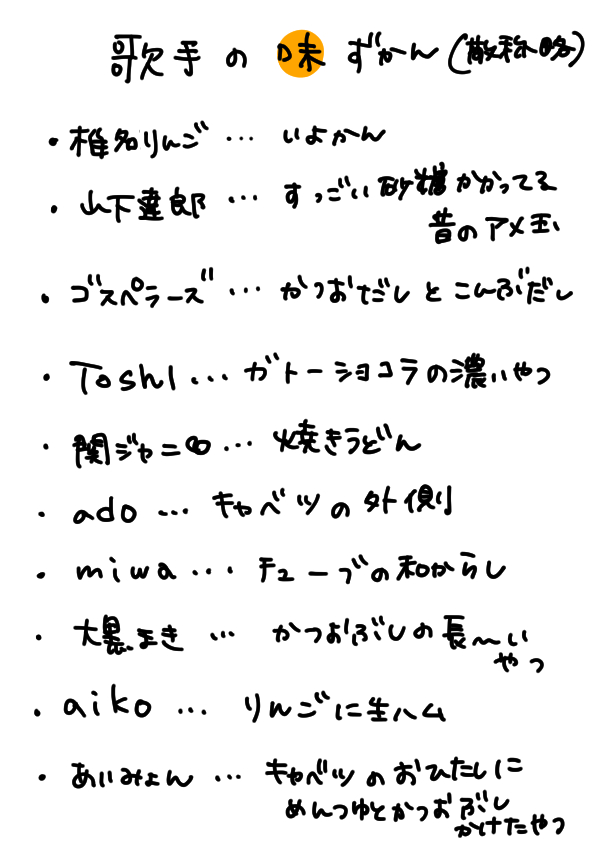 歌手の味ずかん(敬称略)
・椎名りんご…いよかん
・山下達郎…すっごい砂糖かかってる
昔のアメ玉
・ゴスペラーズ…かつおだしとこんぶだし
・Toshl...ガトーショコラの濃いやつ
・関ジャニ∞…焼きうどん
・ado…キャベツの外側
・miwa...チューブの和からし
・大黒まき…かつおぶしの長〜い
やつ
・aiko…りんごに生ハム
・あいみょん…キャベツのおひたしに
めんつゆとかつおぶし
かけたやつ